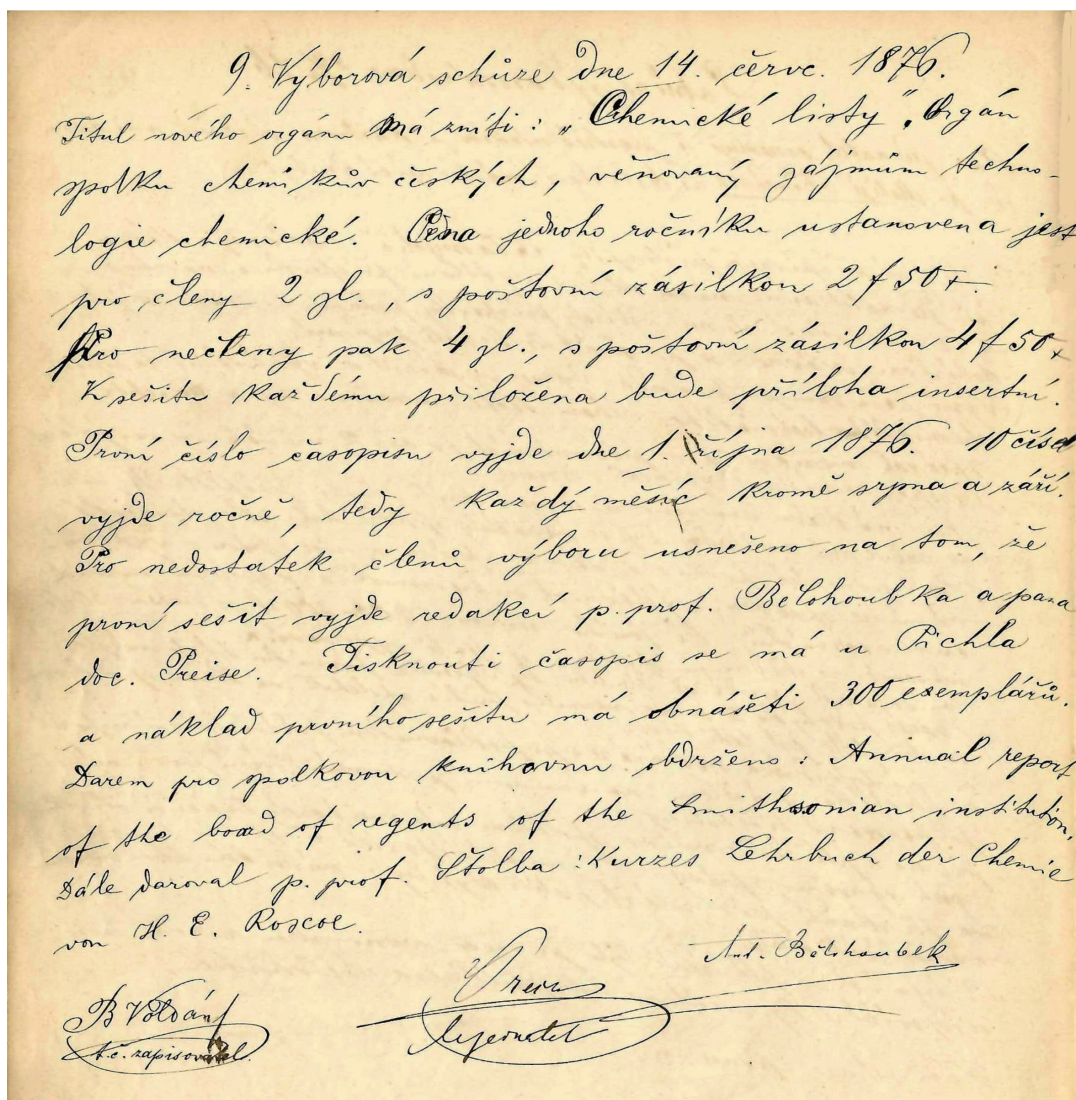 9. Výborová schůze dne 14. červc. 1876.
Titul nového orgánu má zníti: „Chemické listy". Orgán
spolku chemikův českých, věnovaný zájmům techno-
logie chemické. Cena jednoho ročníku ustanovena jest
pro členy 2 zl., s poštovní zásilkou 2 f 50 x.
Pro nečleny pak 4 zl., s poštovní zásilkou 4 f 50 x
K sešitu každému přiložena bude příloha insertní.
První číslo časopisu vyjde dne 1. října 1876. 10 čísel
vyjde ročně, tedy každý měsíc kromě srpna a září.
Pro nedostatek členů výboru usnešeno na tom, že
první sešit vyjde redakcí p. prof. Bělohoubka a pana
doc. Preise. Tisknouti časopis se má u Pichla
a náklad prvního sešitu má obnášeti 300 exemplářů.
Darem pro spolkovou knihovnu obdrženo: Annual report
of the board of regents of the Smithsonian institution.
Dále daroval p. prof. Štolba: Kurzes Lehrbuch der Chemie
von H. E. Roscoe.
Ant. Bělohoubek
Preis
B Voldán
jednatel
t.č. zapisovatel.